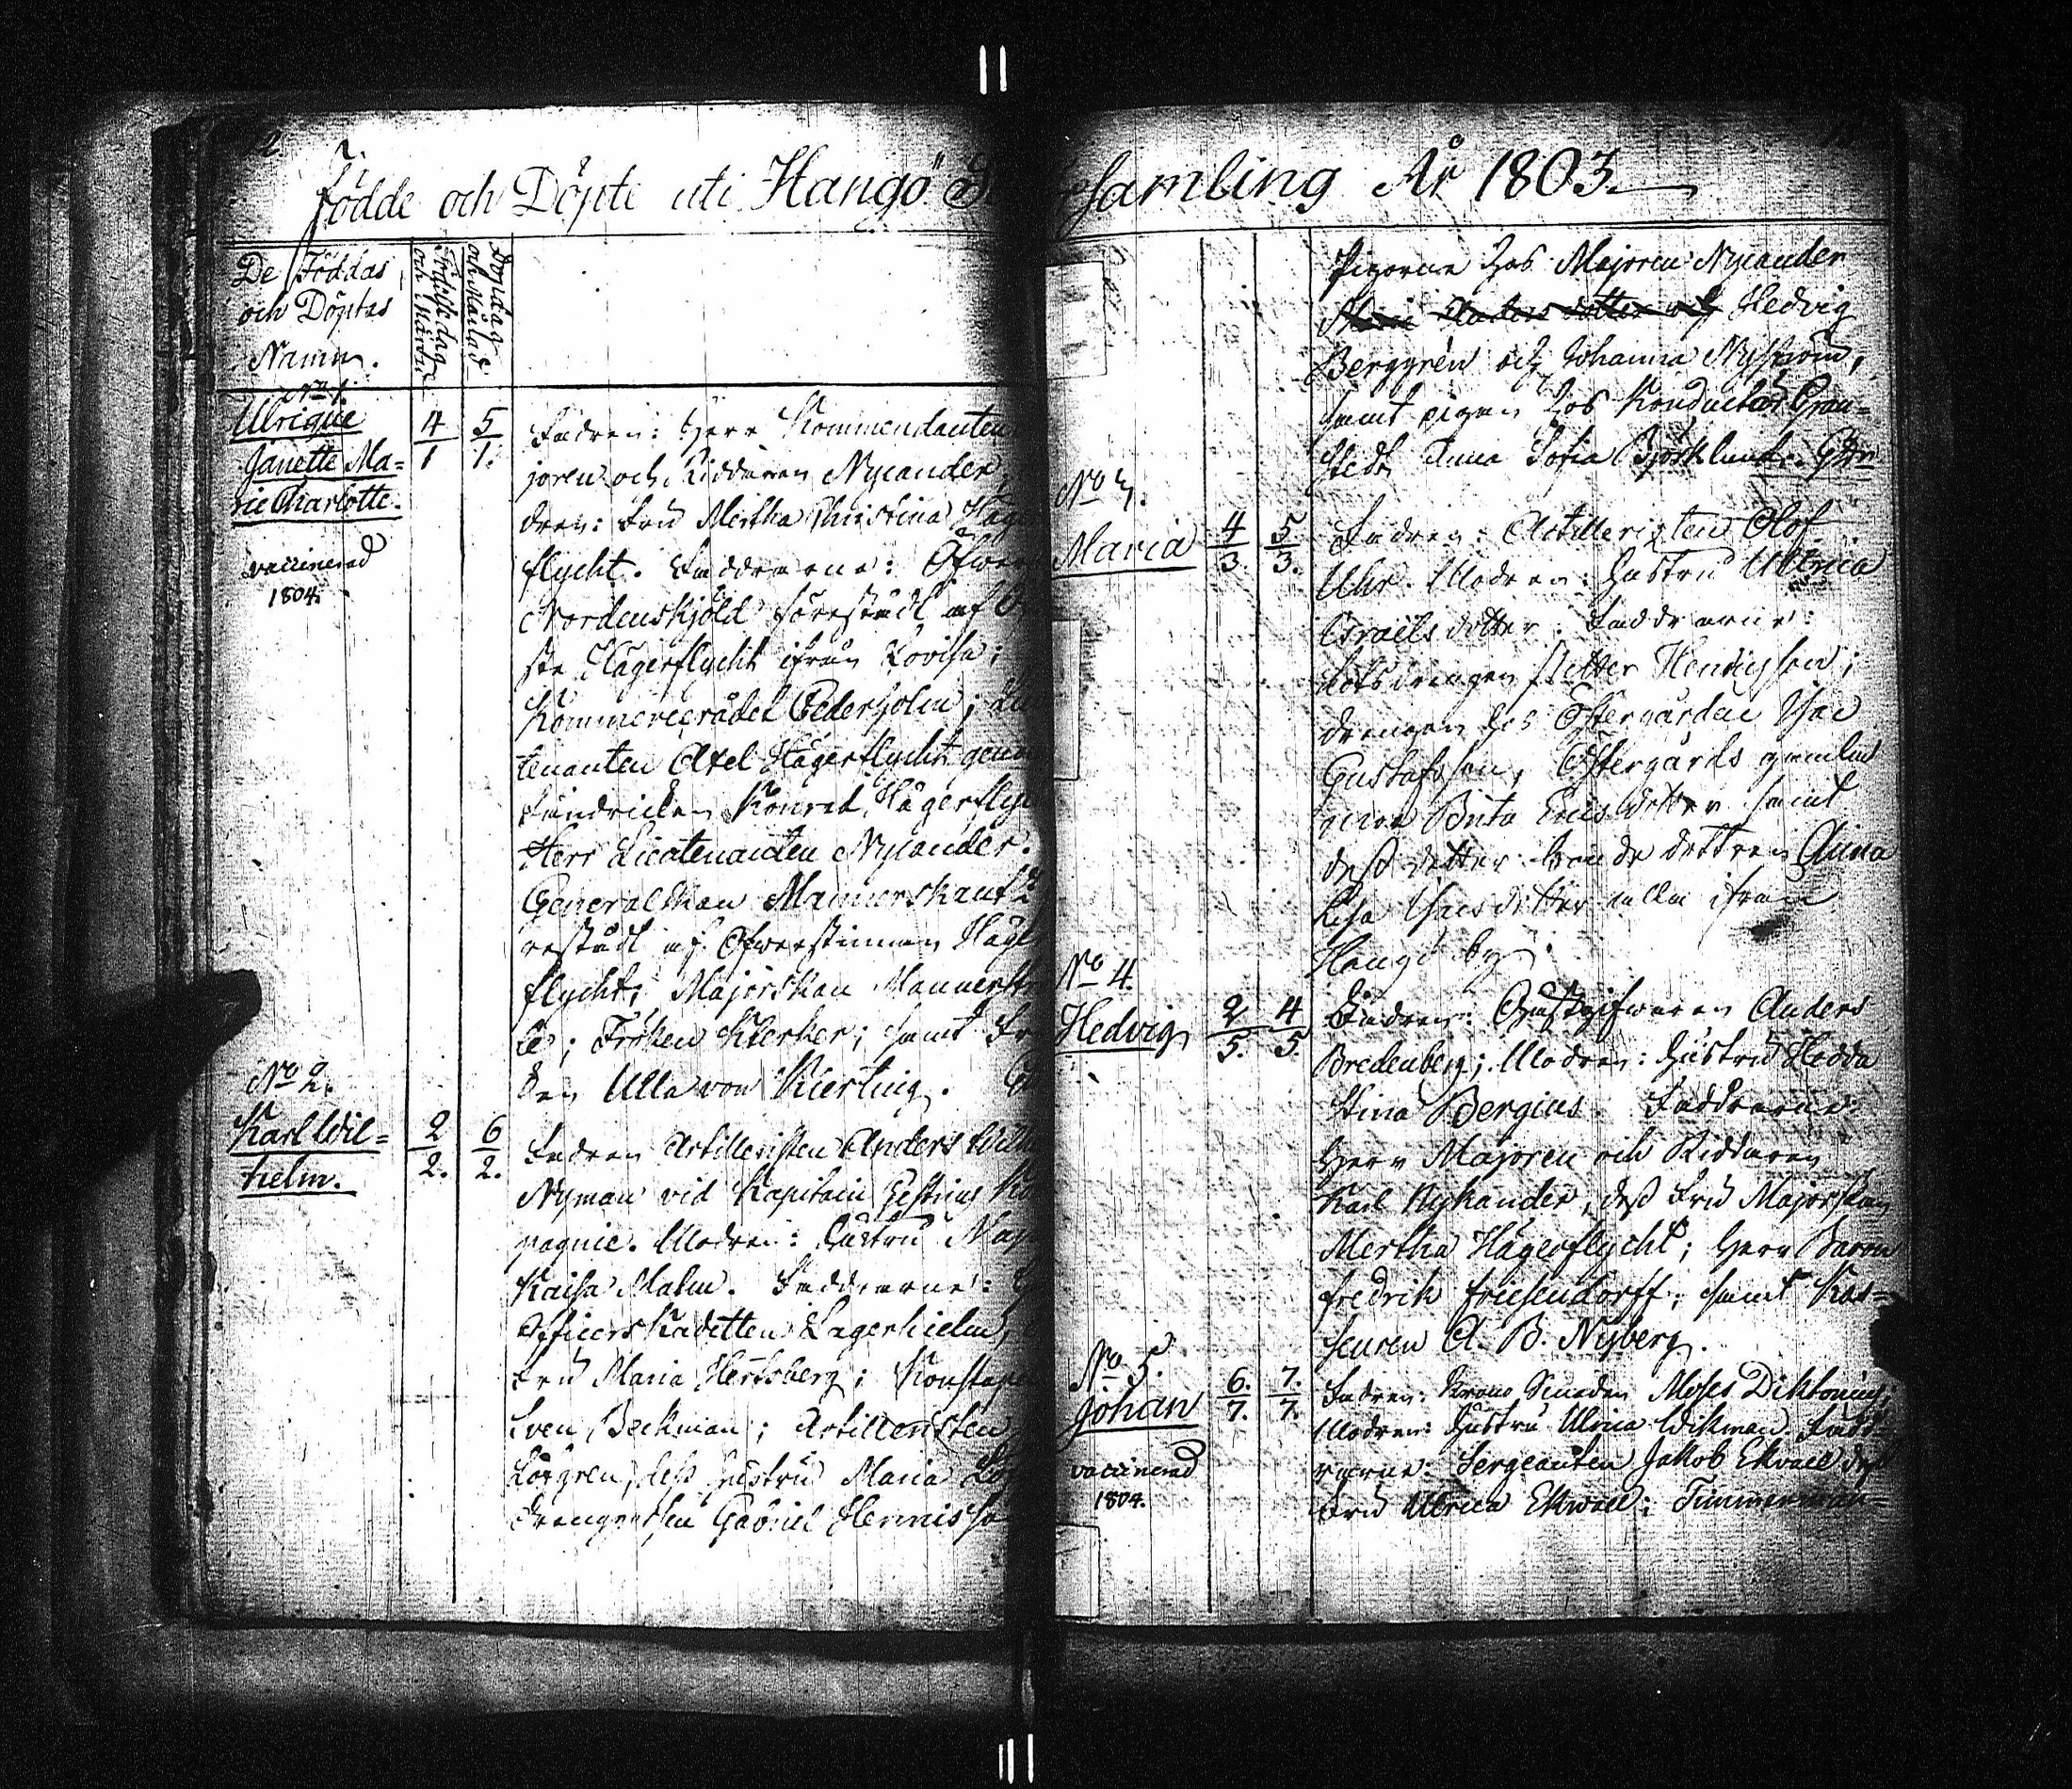 2.
Födde och Döpte uti Hangö
De Föddas
och Döptas
Namn.
Födelsedag
och Månad
Dopdag
och Månad
No 1.
Ulrique
Janette Ma=
rie Charlotte.
vaccinerad
1804.
4/1
5/1.
Fadren: Herr Kommendanten
joren och Riddaren Nycander,
dren: Fru Mertha Christina Häg
flycht. Faddrarne: Öfwer
Nordenskjöld förestäld af
ste Hägerflycht ifrån Lovisa;
Kommercerådet Cederholm;
tenanten Axel Hägerflycht genom
Fändricken Konrad Hägerflyc
Herr Lieutenanten Nycander.
Generalskan Mannerskantz
restäld af Öfwerstinnan Häger
flycht; Majorskan Manner
Fröken Klerker; samt Frö
ken Ulla von Kierting.
No 2.
Karl Wil=
helm.
2/2.
6/2.
Fadren Artilleristen Anders
Nyman vid Kapitain Gestrins Ko
pagnie. Modren: Hustru
Kaisa Malm. Faddrarne:
Officers Kadetten Lagerhielm,
Fru Maria Hertsberg; Konstape
Sven Beckman; Artilleristen
Lörgren, dess Hustru Maria
Gabriel
samling År 1803.
Pigorne hos Majoren Nycander
Hedvig
Berggrén och Johanna Nyström,
samt pigan hos Konducteur Gran=
stedt Anna Sofia Björklund.
No 3.
Maria
4/3.
5/3.
Fadren: Artilleristen Olof
Uhr. Modren: Hustru Ulrica
Israëls dotter. Faddrarne:
Lotsdrengen Petter Henricsson;
drengen hos Östergårdae Isac
Gustafsson, Östergårds gamla
mora Brita Ericsdotter samt
dess dotter dottren Anna
Lisa Isacsdotter alla ifrån
Hangö by.
No 4.
Hedvig
2/5.
4/5.
Fadren: Gästgifwaren Anders
Bredenberg; Modren: Hustru Hedda
Stina Bergius. Faddrarne:
Herr Majoren och Riddaren
Karl Nykander, dess Fru Majorskan
Mertha Hägerflycht; Herr Baron
Fredrik Friesendorff; samt Kas=
seuren A. B. Nyberg.
No 5.
Johan
vaccinerad
1804.
6./7.
7./7.
Fadren: Krono Smeden Moses Diktonius;
Modren: Hustru Ulrica Wikman. Fadd=
rarne: Sergeanten Jakob Ekvall dess
Fru Ulrica Ekwall; Timmerman=